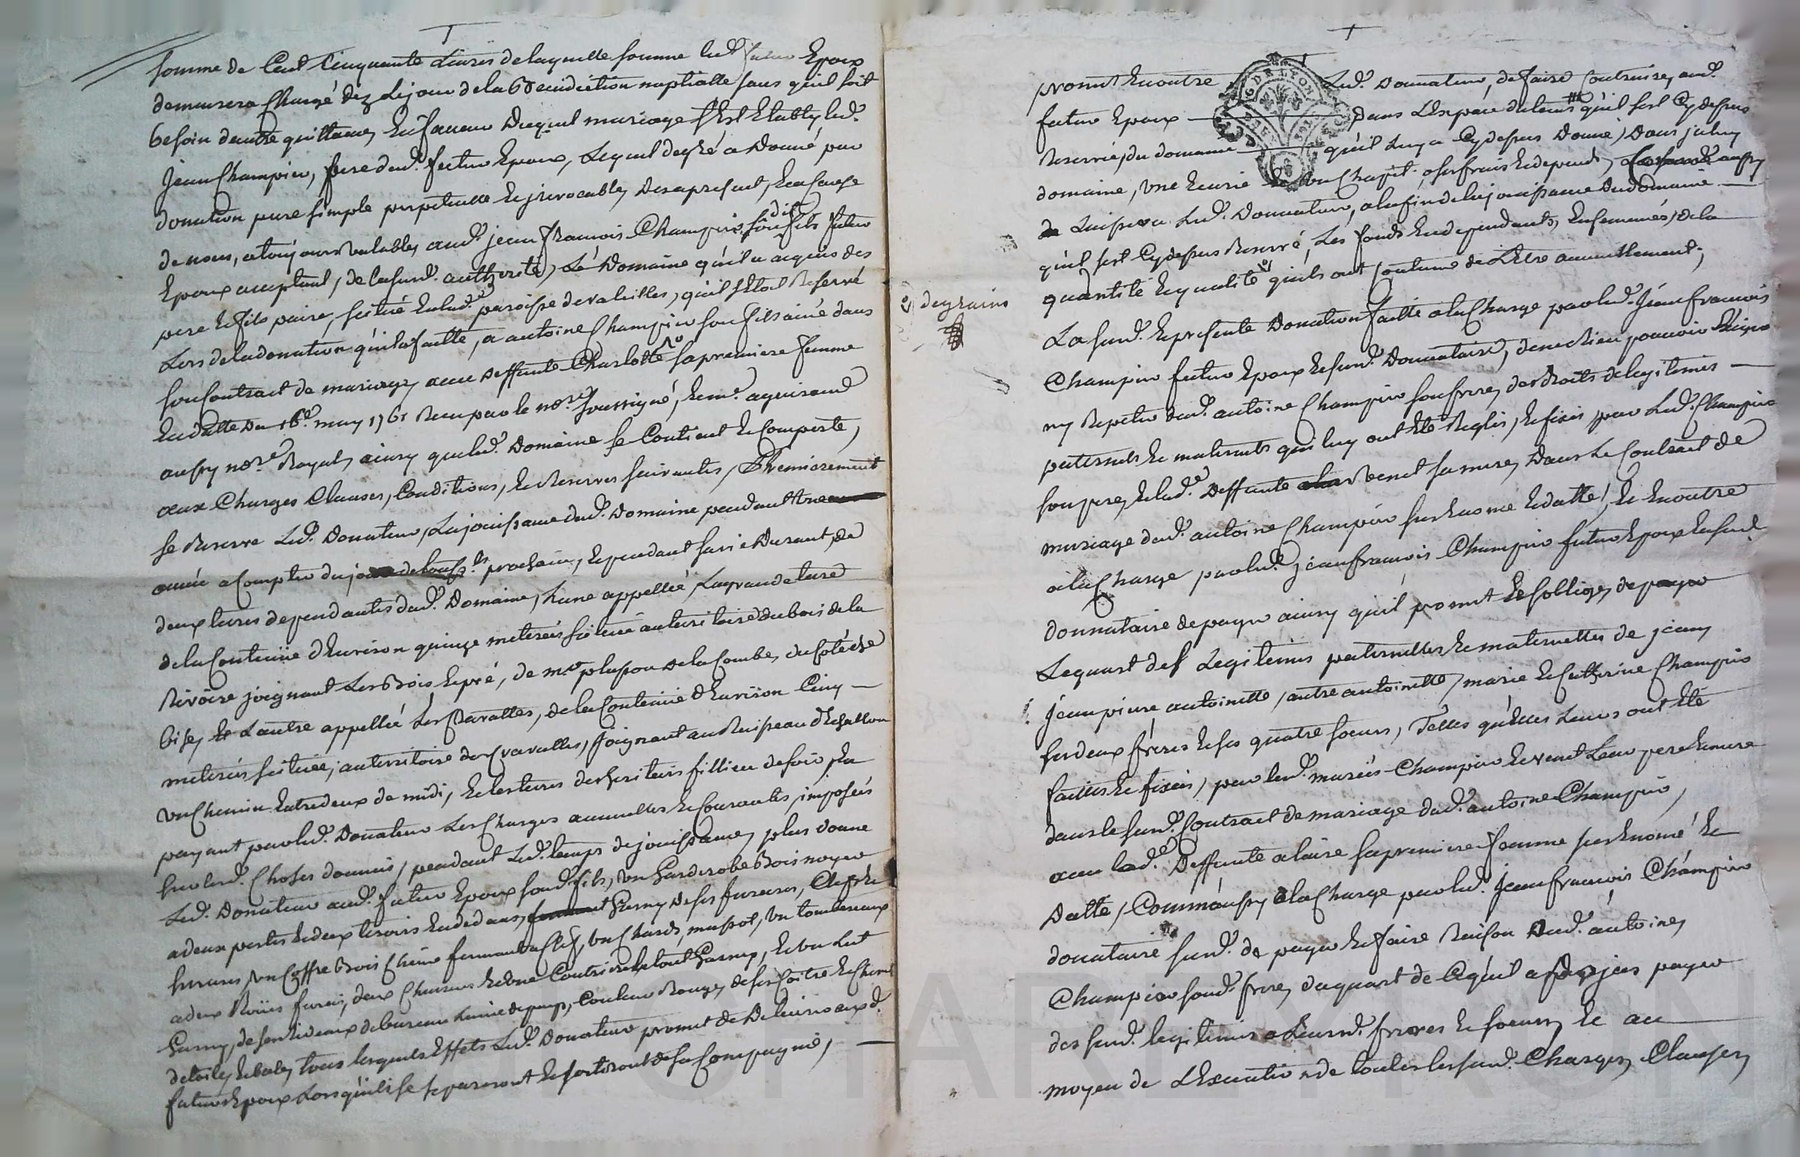 somme de Cent Cinquante Livres de laquelle somme led. futur Epoux
demeurera Chargé dez Le jour de la Benediction nuptialle sans quil soit
besoin dautre quittance, En faveur Duquel mariage S'Est Etably led.
jean Champier, pere dud. futur Epoux, Lequel de gré a Donné par
donation pure simple perpetuelle Et jrrevocable, Desaprésent, En a Cause
de noces, a toujours Valable, aud. jean francois Champier sondit fils futur
Epoux acceptant, de lasusd. authorité, Le Domaine qu'il a acquis des
pere Et fils paire, scitué En lad. paroisse de valeilles, quil s'Etoit Reservé
Lors de la donation qu'il a faitte, a antoine Champier son fils ainé dans
son Contrat de mariage, avec deffunte Charlotte sa premiere femme
En datte Du 16e. may 1761 Recu par le nore. soussigné, Et me. aguiraud
aussy nore. Royal, ainsy que led. Domaine se Contient Et Comporte,
aux Charges Clauses, Conditions, Et Reserves suivantes, Premierement
se Reserve Led. Donateur, La jouissance dud. Domaine pendant Une
année a Compter du prochain, Et pendant sa vie Durant, de
deux terres dependantes dud. Domaine, L'une appellée La grande terre
de la Contenüe d'Environ quinze meterées scituée au territoire du bois de la
Rivoire joignant Les Bois Et pré, de mr. plasson de la Combe, du Coté de
bise, Et Lautre appellée Les Cravattes, de la Contenüe d'Environ Cinq
meterées scituée, au territoire des Cravattes, joignant au Ruisseau
un Chemin Entredeux de midi, Et les terres des heritiers fillieu de soir, En
payant par led. Donateur Les Charges annuelles Et Courantes, imposées
sur lesd. Choses données, pendant Led. temps de jouissance, plus donne
Led. Donateur aud. futur Epoux sond. fils, un Garderobe Bois noyer
a deux portes Et deux tiroirs En dedans, Garny de ses serrures, Clefs Et
ferrures, un Coffre Bois Chêne fermant a Clef, un Chard, un tombereaux
a deux Roües ferré, deux Charrues Et Une Coutriere Le tout Garny, Et un Lit
Garny, de son Couleur Rouge, de sa Coitre Et Chevet
de toile, Et bale, tous lesquels Effets Led. Donateur promet De Delivrer auxd.
futurs Epoux Lorsqu'ils se separeront Et sortiront de sa Compagnie,
promet En outre Led. Donateur, de faire Construire, aud.
futur Epoux dans L'Espace de temps quil sest Cy dessus
Reservé, du domaine qu'il Luy a Cy dessus Donné, Dans jceluy
domaine, une Ecurie un Chapit a ses frais Et depends,
Laissera Led. Donnateur, a la fin de la jouissance Dud domaine
qu'il sest Cy dessus Reservé, Les fonds En dependants, Ensemencés, de la
quantité Et qualité qu'ils ont Coutume de L'Etre annuellement,
et des grains
La susd. Et présente Donation faitte a la Charge par led. jean francois
Champier futur Epoux Et susd. Donnataire, de ne Rien pouvoir
ny Repeter dud. antoine Champier son frere, des droits de legitimes
paternels Et maternels qui luy ont Eté Reglés, Et fixés, par Led. Champier
son pere, Et lad. Deffunte venet sa mere, Dans Le Contract de
mariage dud. antoine Champier susEnomé Et datté, Et En outre
a la Charge par led. jean francois Champier futur Epoux Et susd.
donnataire de payer ainsy qu'il promet Et s'oblige, de payer
Le quart des Legitimes paternelles Et maternelles de jean,
jean pierre antoinette, autre antoinette, marie Et Catherine Champier
ses deux freres Et ses quatre soeurs, Telles qu'Elles Leurs ont Eté
faittes Et fixées, par lesd. mariés Champier Et venet Leur pere Et mere
dans le susd. Contract de mariage dud. antoine Champier,
avec lad. Deffunte sa premiere femme susEnomé Et
Datté, Comm'aussy a la Charge par led. jean francois Champier
donataire susd. de payer Et faire Raison aud. antoine,
Champier sond. frere, du quart de Ce qu'il a payer
des susd. legitimes a Leursd. freres Et soeurs, Et au
moyen de L'Execution de toutes les susd. Charges, Clauses,